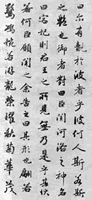 曰爾有覿於彼者乎彼何人斯若斯
之艷也御者對曰臣聞河洛之神名
曰宓妃則君王之所見無乃是乎其狀
若何臣願聞之余告之曰其形也翩若
驚鴻婉若游龍榮曜秋菊華茂